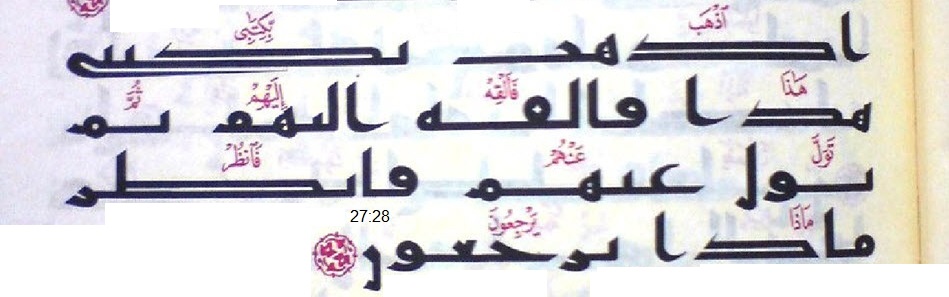 ٱذْهَب بِّكِتَٰبِى
اذهب بكتبى
هَٰذَا فَأَلْقِهْ إِلَيْهِمْ ثُمَّ
هذا فالقه اليهم ثم
تَوَلَّ عَنْهُمْ فَٱنظُرْ
تول عنهم فانظر
مَاذَا يَرْجِعُونَ
27:28
ماذا يرجعون